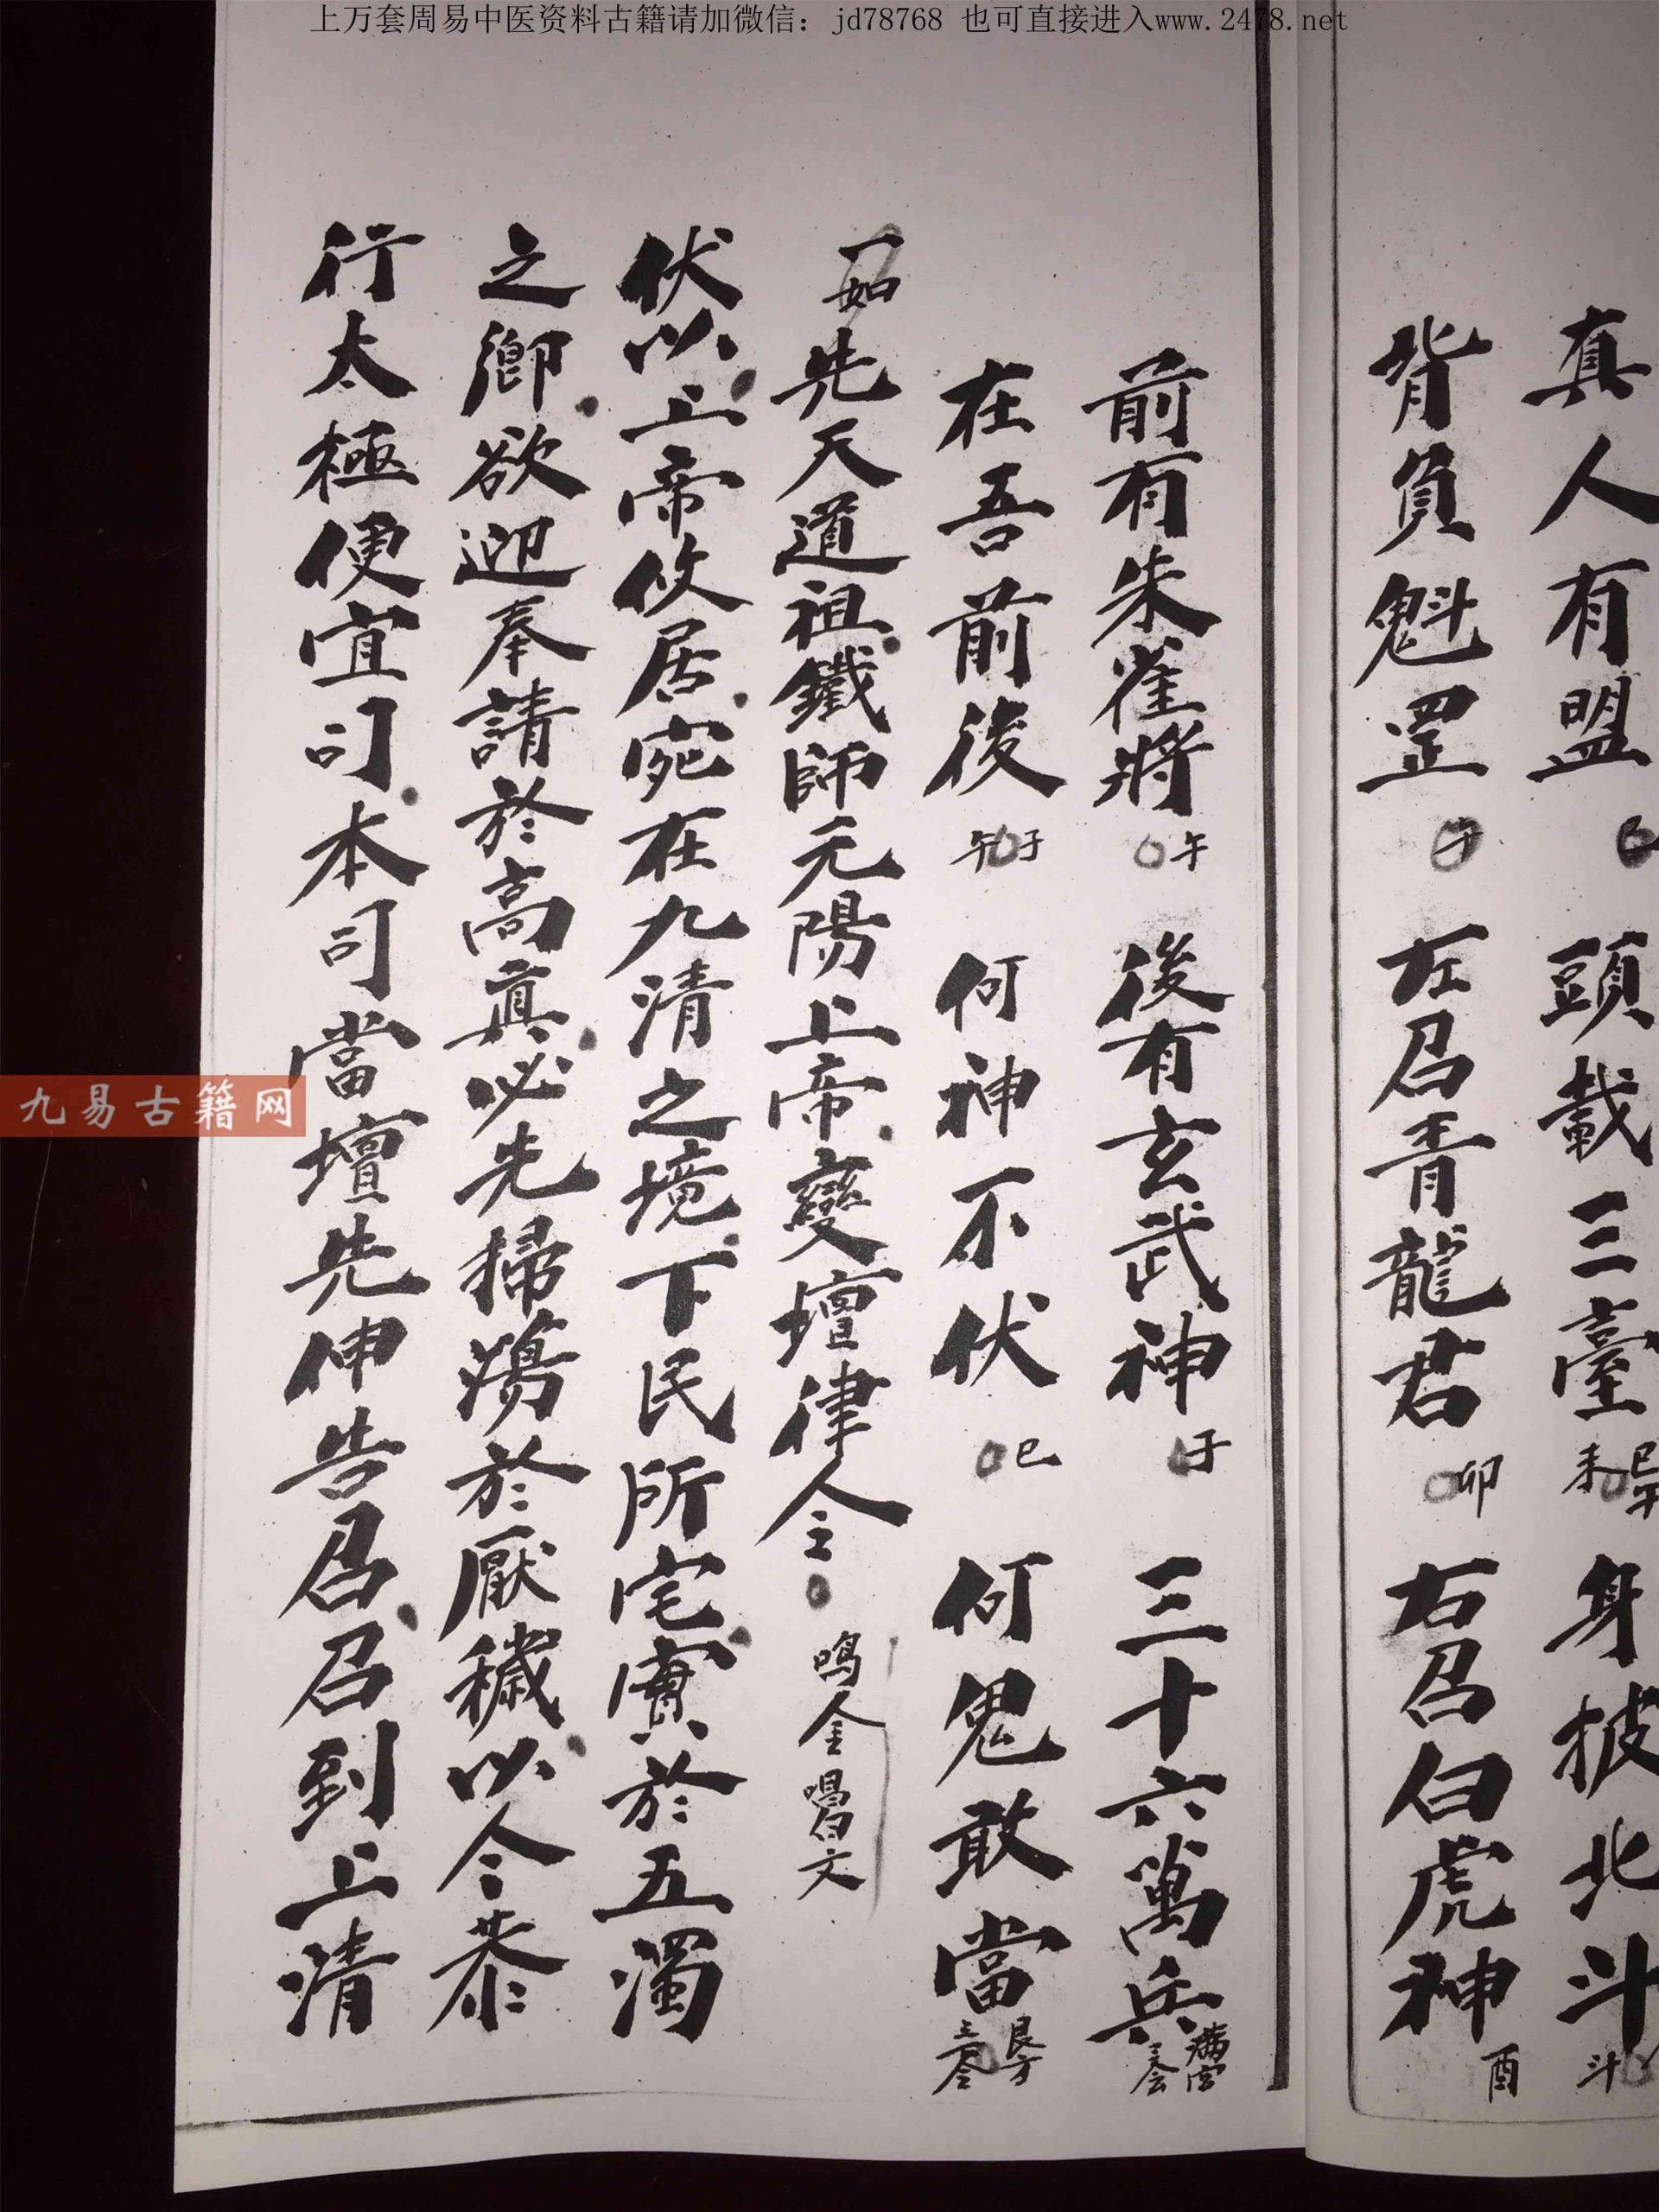 上万套周易中医资料古籍请加微信：jd78768 也可直接进入www.2478.net
真人有盟 巳 頭戴三臺 巳午未 身披北斗 斗
背負魁罡 午 左召青龍君 卯 右召白虎神 酉
前有朱雀將 午 後有玄武神 子 三十六萬兵
在吾前後 子午 何神不伏 巳 何鬼敢當
一如先天道祖鐵師元陽上帝變壇律令 鳴金 唱白文
伏以上帝攸居宛在九清之境下民所宅實於五濁
之鄉欲迎奉請於高真必先掃蕩於厭穢以今恭
行太極便宜司本司當壇先伸告召召到上清
九易古籍网